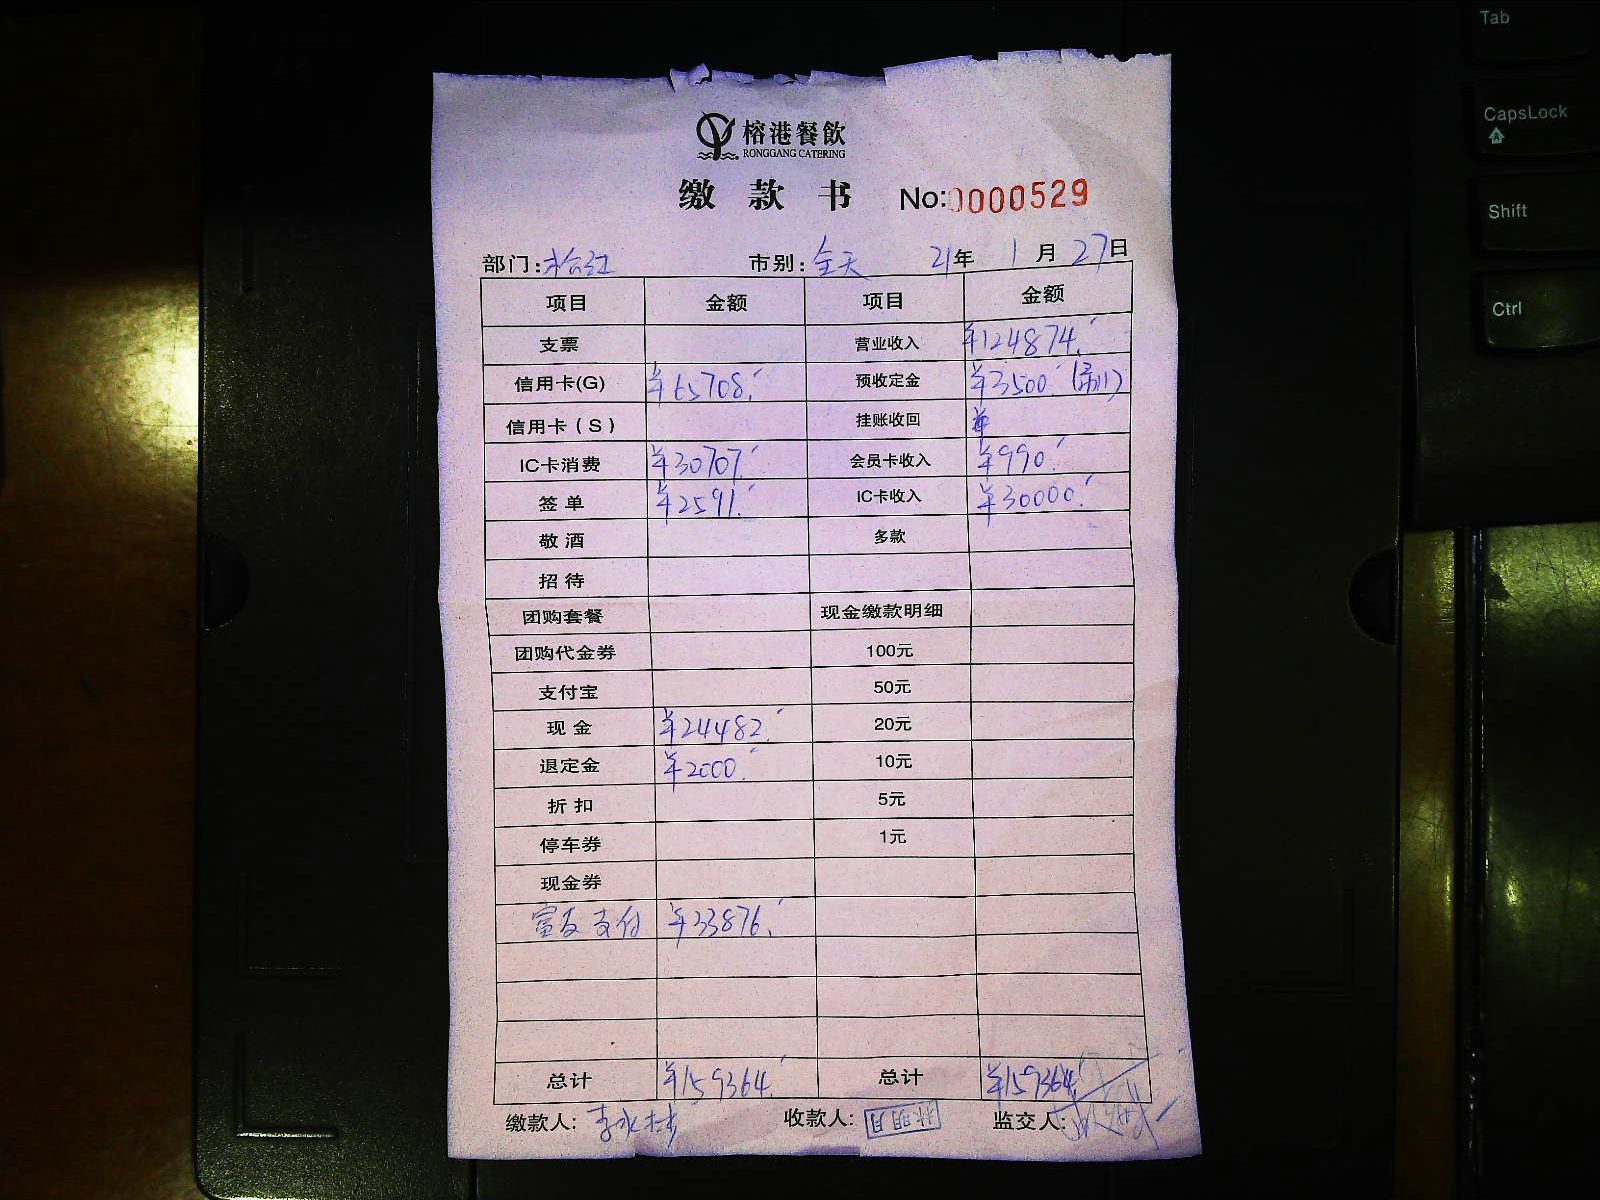 榕港餐飲
RONGGANG CATERING
缴款书 No:0000529
部门: 市别:全天 21年1月27日
项目 金额 项目 金额
支票 营业收入 ¥124874.
信用卡(G) ¥65708. 预收定金 ¥3500.
信用卡(S) 挂账收回 ¥
IC卡消费 ¥30707. 会员卡收入 ¥990.
签单 ¥2591. IC卡收入 ¥30000.
敬酒 多款
招待
团购套餐 现金缴款明细
团购代金券 100元
支付宝 50元
现金 ¥24482. 20元
退定金 ¥2000. 10元
折扣 5元
停车券 1元
现金券
富友支付 ¥33876.
总计 ¥159364. 总计 ¥159364.
缴款人: 收款人:林明月 监交人:
Tab
CapsLock
Shift
Ctrl